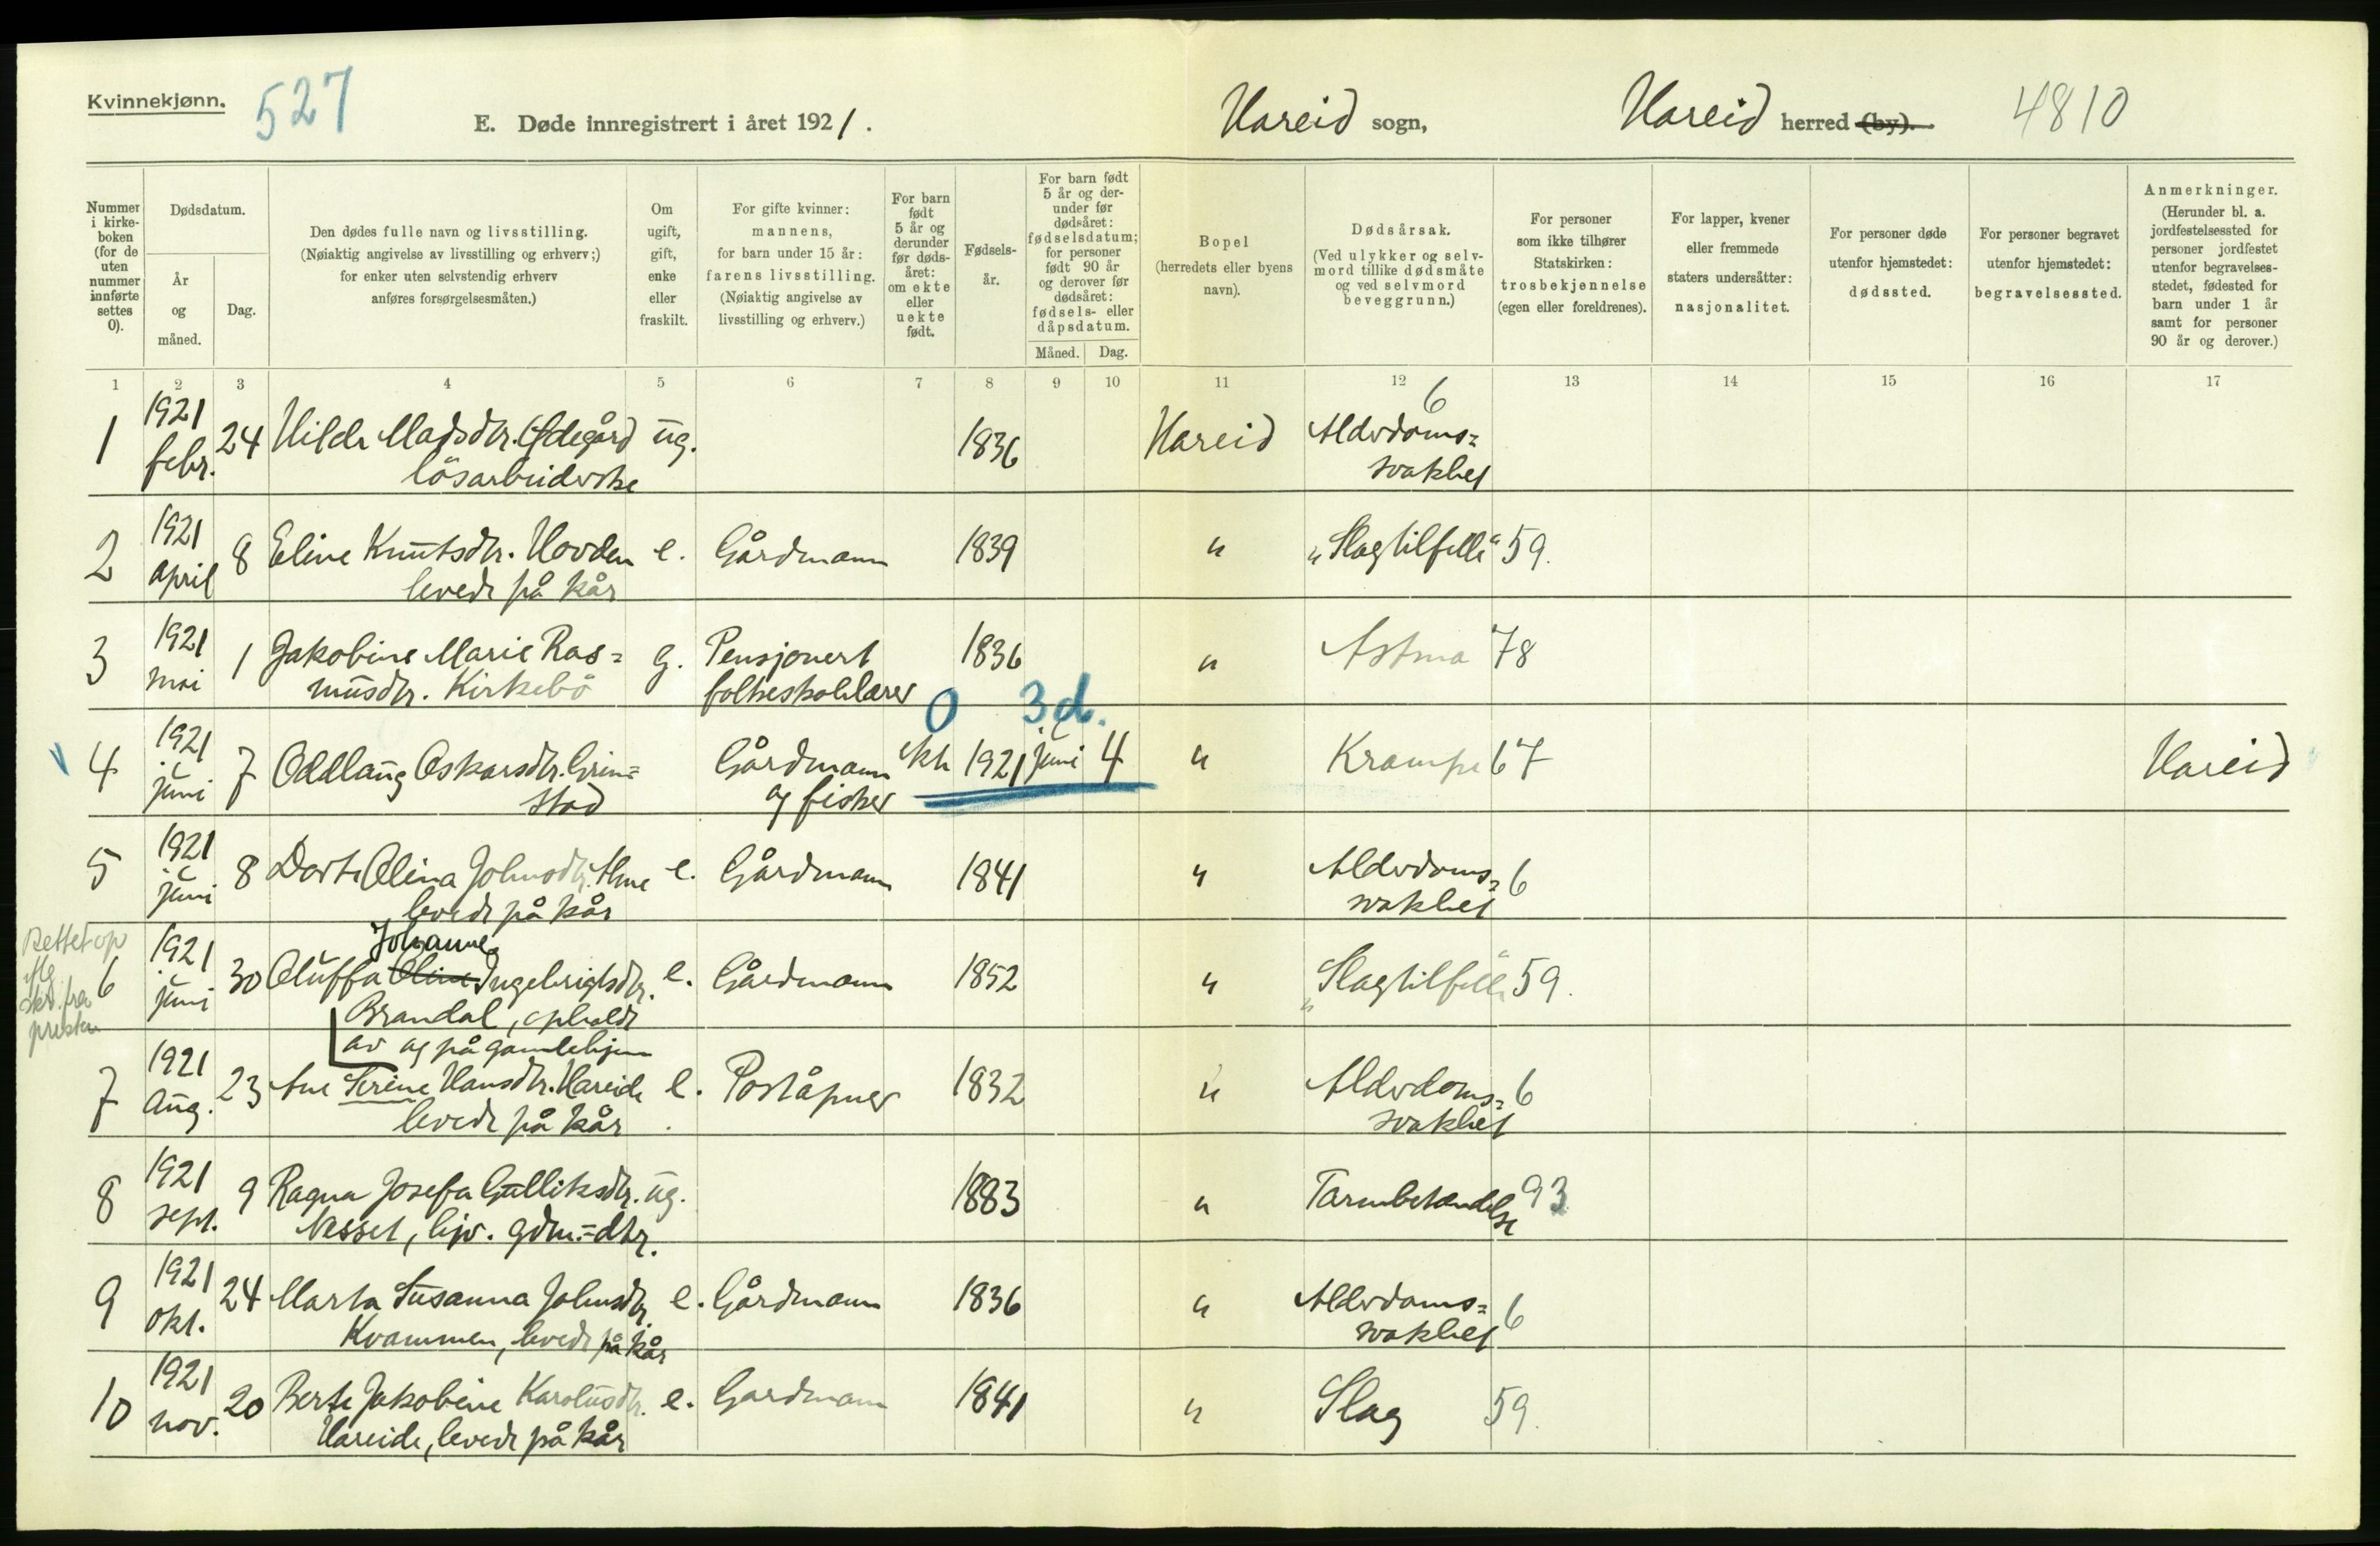 Kvinnekjønn.
527
E. Døde innregistrert i året 1921.
Hareid sogn,
Hareid herred (by).
4810
Nummer i kirke-boken (for de uten nummer innførte settes 0).
Dødsdatum.
År og måned.
Dag.
Den dødes fulle navn og livsstilling.
(Nøiaktig angivelse av livsstilling og erhverv;)
for enker uten selvstendig erhverv
anføres forsørgelsesmåten.)
Om ugift, gift, enke eller fraskilt.
For gifte kvinner:
mannens,
for barn under 15 år:
farens livsstilling.
(Nøiaktig angivelse av
livsstilling og erhverv.)
For barn født 5 år og derunder før døds-året: om ekte eller uekte født.
Fødsels-år.
For barn født 5 år og der-under før dødsåret: fødselsdatum; for personer født 90 år og derover før dødsåret: fødsels- eller dåpsdatum.
Måned.
Dag.
Bopel
(herredets eller byens
navn).
Dødsårsak.
(Ved ulykker og selv-
mord tillike dødsmåte
og ved selvmord
beveggrunn.)
For personer
som ikke tilhører
Statskirken:
trosbekjennelse
(egen eller foreldrenes).
For lapper, kvener
eller fremmede
staters undersåtter:
nasjonalitet.
For personer døde
utenfor hjemstedet:
dødssted.
For personer begravet
utenfor hjemstedet:
begravelsessted.
Anmerkninger.
(Herunder bl. a.
jordfestelsessted for
personer jordfestet
utenfor begravelses-
stedet, fødested for
barn under 1 år
samt for personer
90 år og derover.)
1 2 3 4 5 6 7 8 9 10 11 12 13 14 15 16 17
1 1921 febr. 24 Hilda Madsdtr. Ødegård ug. 1836 Hareid Alderdoms= 6
løsarbeiderske svakhet
2 1921 april 8 Eline Knutsdtr. Hovden e. Gårdmann 1839 " "Slagtilfelle" 59.
levede på kår
3 1921 mai 1 Jakobine Marie Ras= g. Pensjonert 1836 " Astma 78
musdtr. Kirkebø folkeskolelærer
0 3 d.
4 1921 juni 7 Oddlaug Oskarsdtr. Grim= Gårdmann ekte 1921 juni 4 " Krampe 67 Hareid
stad og fisker
5 1921 juni 8 Dorte Olina Johnsdtr. Alme e. Gårdmann 1841 " Alderdoms= 6
levede på kår svakhet
Rettet op
efter
skr. fra
presten
Johanne
6 1921 juni 30 Oluffa Oline Ingebrigtsdtr. e. Gårdmann 1852 " "Slagtilfelle" 59.
Brandal, opholdt
av og på gamlehjem
7 1921 aug. 23 Ane Serine Hansdtr. Hareide e. Poståpner 1832 " Alderdoms= 6
levede på kår svakhet
8 1921 sept. 9 Ragna Josefa Gulliksdtr. ug. 1883 " Tarmbetændelse 93
Nesset, hjv. gdm.=dtr.
9 1921 okt. 24 Marta Susanna Johnsdtr. e. Gårdmann 1836 " Alderdoms= 6
Kvammen, levede på kår svakhet
10 1921 nov. 20 Berte Jakobine Karolusdtr. e. Gardmann 1841 " Slag 59.
Hareide, levede på kår